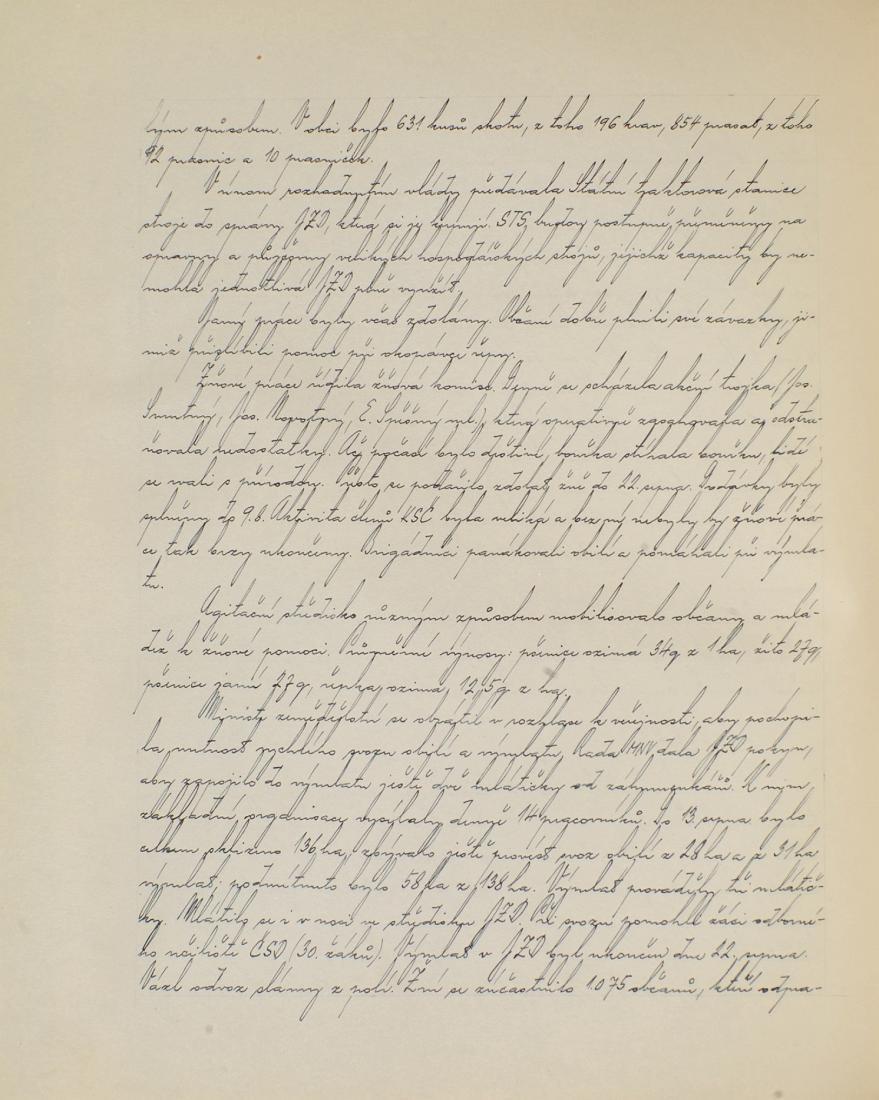 lým způsobem. V obci bylo 631 kusů skotu, z toho 196 krav, 854 prasat, z toho
92 prasnic a 10 prasniček.
V únoru rozhodnutím vlády předávala Státní traktorová stanice
stroje do správy JZD, která si je kupují. STS budou postupně přeměněny na
opravny a půjčovny velikých hospodářských strojů, jejichž kapacity by ne-
mohla jednotlivá JZD plně využít.
Jarní práce byly včas zdolány. Občané dobře plnili své závazky, ji-
miž přislíbili pomoc při okopávce řepy.
Žňové práce řídila žňová komise. Denně se scházela akční trojka (Jos.
Smutný, Jos. Novotný, E. Špěšný ml.), která operativně zasahovala a odstra-
ňovala nedostatky. Ač počasí bylo deštivé, bouřka stíhala bouřku, lidé
se rvali s přírodou. Přesto se podařilo zdolat žně do 22. srpna. Dodávky byly
splněny do 9.8. Aktivita členů KSČ byla veliká a bez ní nebyly by žňové prá-
ce tak brzy ukončeny. Brigádníci panákovali obilí a pomáhali při výmla-
tu.
Agitační středisko různým způsobem mobilisovalo občany a mlá-
dež k žňové pomoci. Průměrné výnosy: pšenice ozimá 34q z 1 ha, žito 27q,
pšenice jarní 27q, řepka ozimá 12,5q z ha.
Ministr zemědělství se obrátil v rozhlase k veřejnosti, aby pochopi-
la nutnost rychlého svozu obilí a výmlatu. Rada MNV dala JZD pokyn,
aby zapojilo do výmlatu ještě dvě mlátičky od záhumenkářů. K nim
základní organisace vysílaly denně 14 pracovníků. Do 13. srpna bylo
celkem sklizeno 136 ha, zbývalo ještě provést svoz obilí z 28 ha a z 31 ha
výmlat; podmítnuto bylo 58 ha z 138 ha. Výmlat prováděly tři mlátič-
ky. Mlátilo se i v noci ve středisku JZD. Při svozu pomohli žáci odborné-
ho učiliště ČSD (30. žáků). Výmlat v JZD byl ukončen dne 22. srpna.
Vázl odvoz slámy z polí. Žní se zúčastnilo 1.075 občanů, kteří odpra-